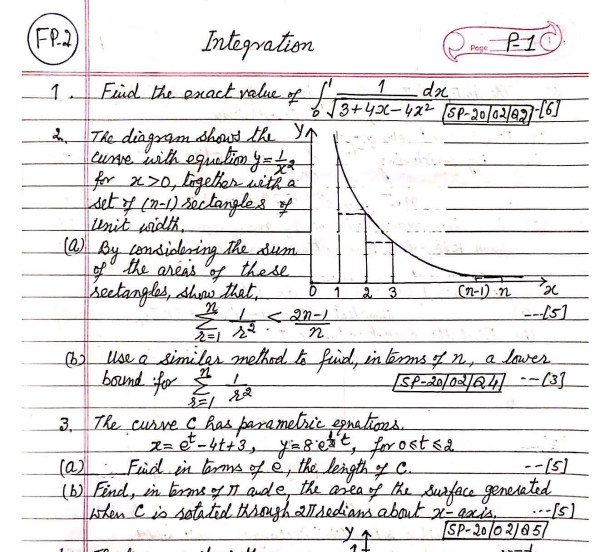 FP.2 Integration Page P-1 ①
1. Find the exact value of ∫₀¹ 1/√(3+4x-4x²) dx [SP-20/02/Q2]-[6]
2. The diagram shows the
curve with equation y = 1/x²
for x>0, together with a
set of (n-1) rectangles of
unit width.
(a) By considering the sum
of the areas of these
rectangles, show that,
n Σ r=1 1/r² < 2n-1/n ---[5]
y
0 1 2 3 (n-1) n x
(b) Use a similar method to find, in terms of n, a lower
bound for n Σ r=1 1/r² [SP-20/02/Q4] --[3]
3. The curve C has parametric equations.
x = eᵗ - 4t + 3, y = 8e^(½t), for 0≤t≤2
(a) Find in terms of e, the length of C. --[5]
(b) Find, in terms of π and e, the area of the surface generated
when C is rotated through 2π radians about x-axis. ---[5]
[SP-20/02/Q5]
y